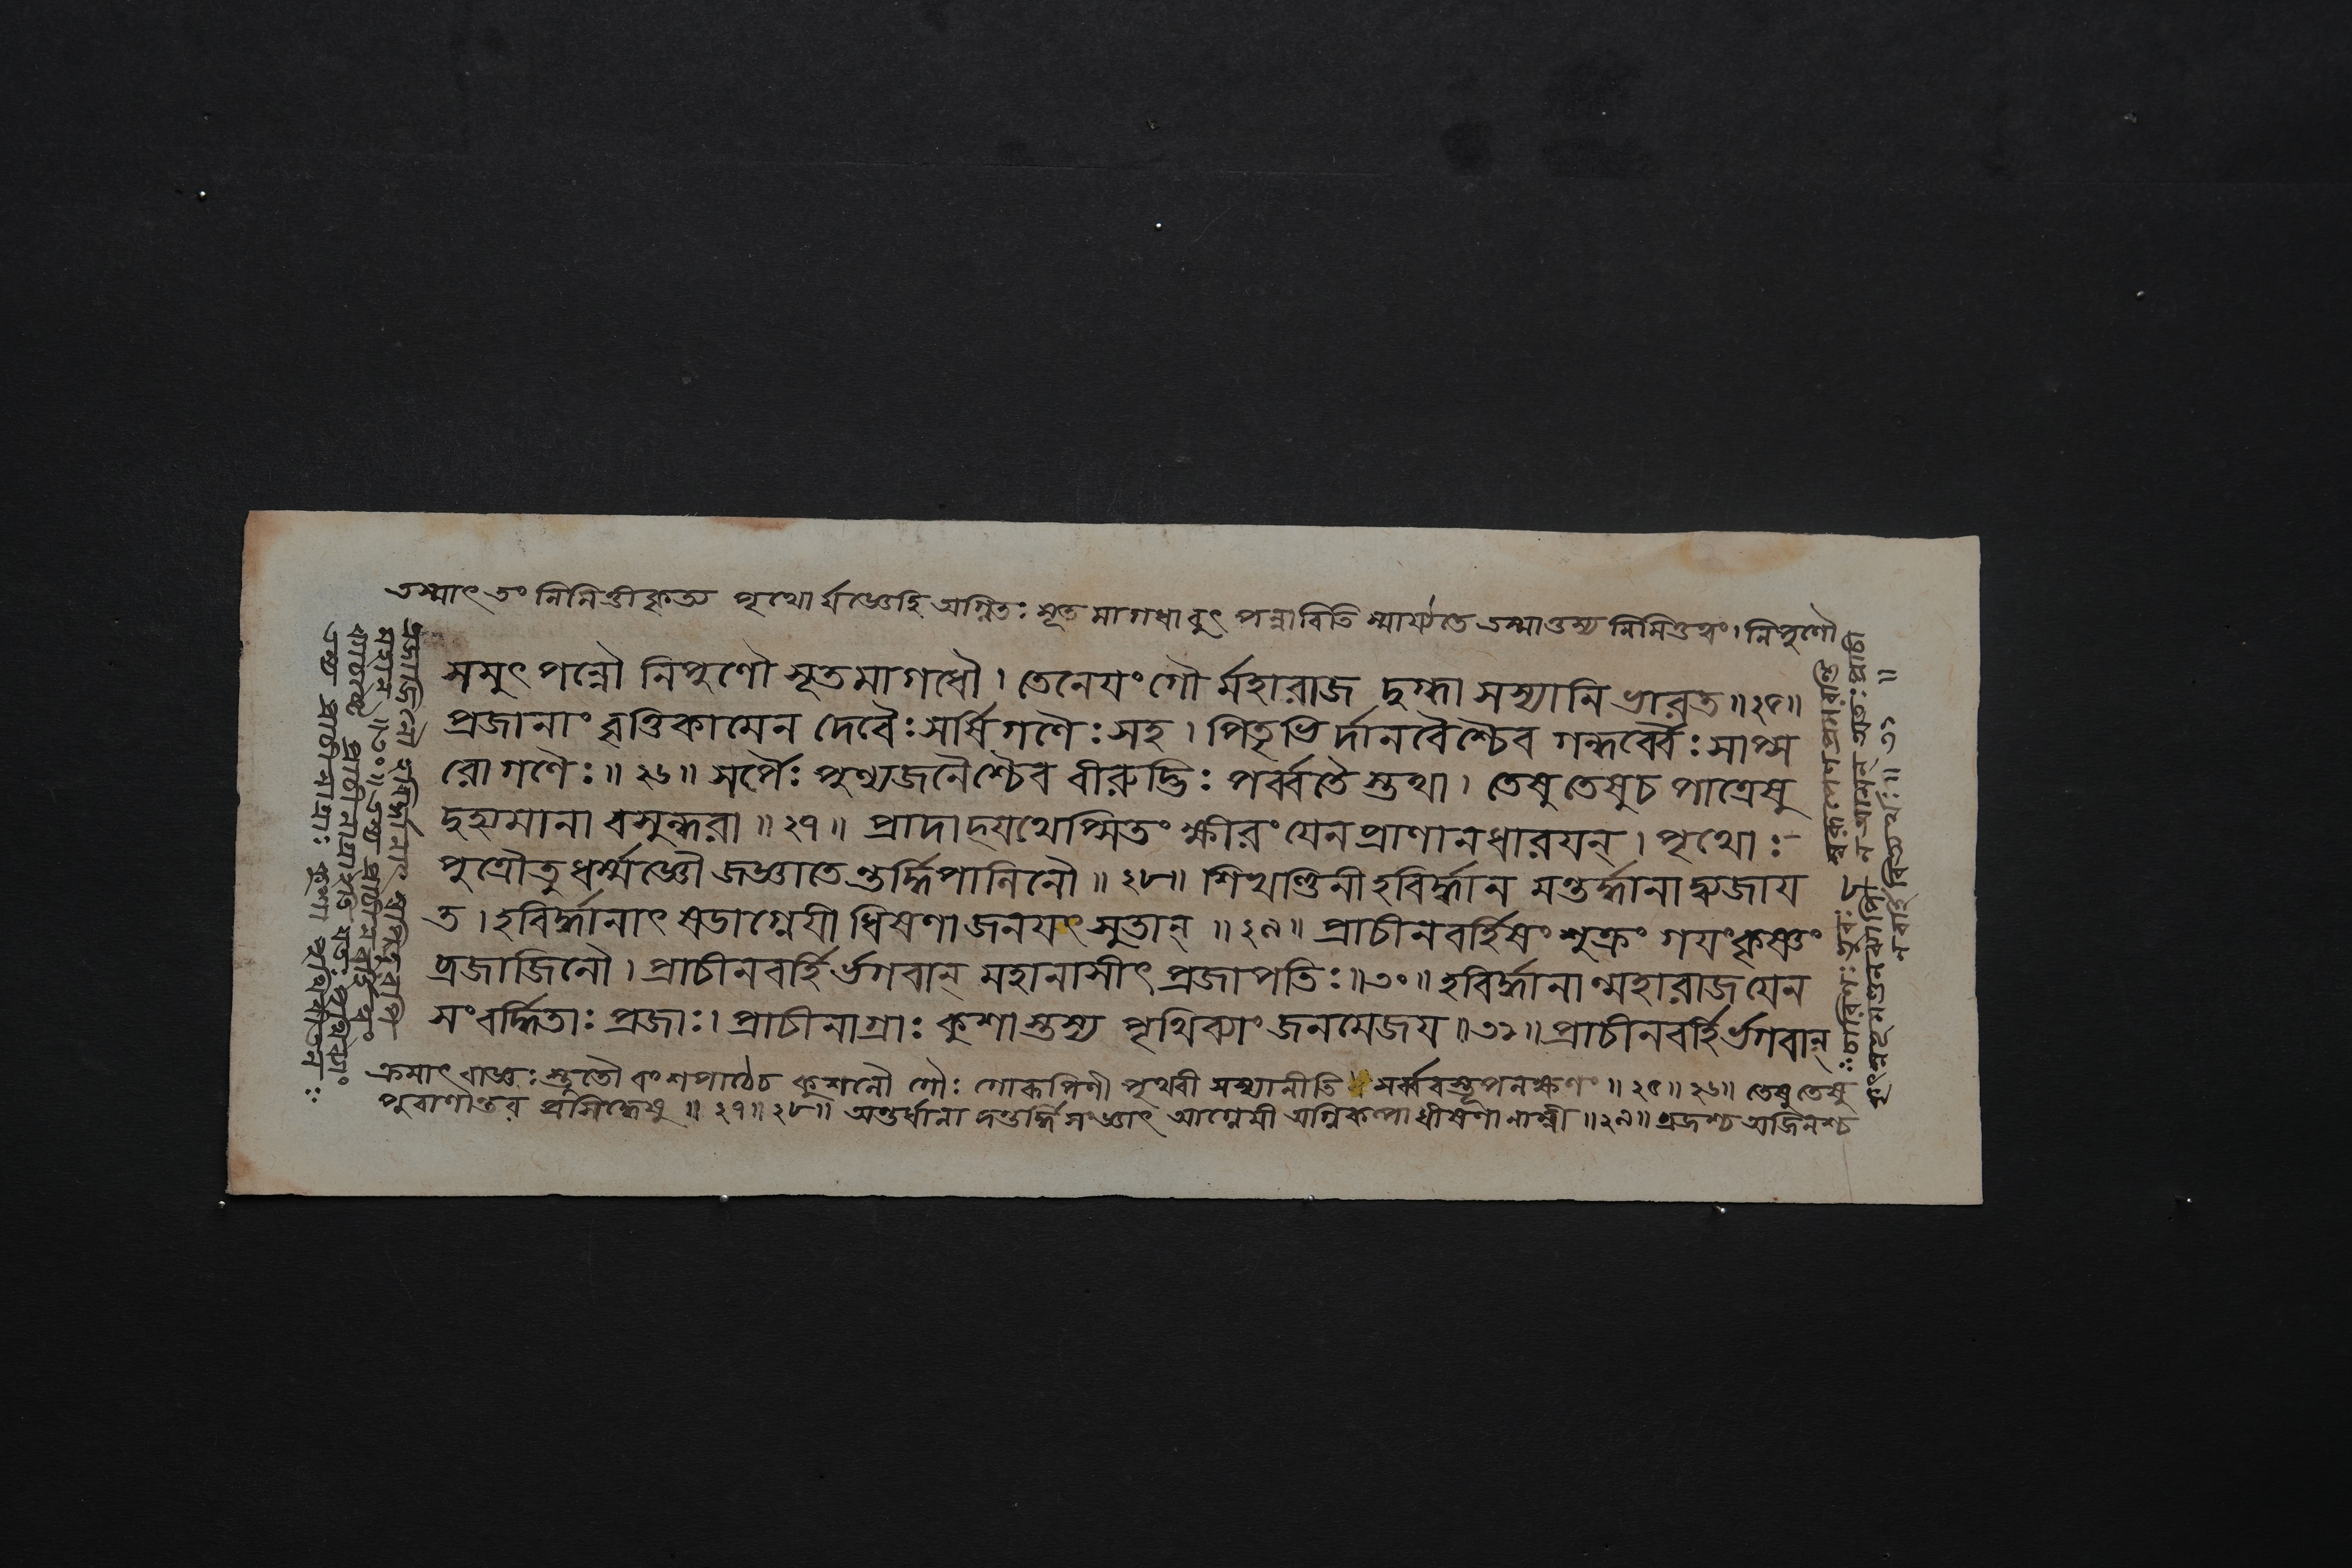 তস্মাৎ তং নিমিত্তীকৃত্য পৃথোর্যজ্ঞেহি অগ্নিতঃ সূত মাগধাবুৎ পন্নাবিতি স্মার্য্যতে তস্মাত্তস্য নিমিত্তত্বং। নিপুণৌ
সমুৎ পন্নৌ নিপুণৌ সূতমাগধৌ। তেনেয়ং গৌ র্মহারাজ দুগ্ধা সস্যানি ভারত॥২৫॥
প্রজানাং বৃত্তিকামেন দেবৈঃ সর্ষি গণৈঃ সহ। পিতৃভি র্দানবৈশ্চৈব গন্ধর্ব্বৈঃ সাপ্স
রোগণৈঃ॥২৬॥ সর্পৈঃ পুণ্যজনৈশ্চৈব বীরুদ্ভিঃ পর্ব্বতৈ স্তথা। তেষু তেষুচ পাত্রেষু
দুহ্যমানা বসুন্ধরা॥২৭॥ প্রাদাদ্যথেপ্সিতং ক্ষীরং যেন প্রাণানধারয়ন্। পৃথোঃ
পুত্রৌতু ধর্ম্মজ্ঞৌ জজ্ঞাতে ন্তর্দ্ধিপালিনৌ॥২৮॥ শিখণ্ডিনী হবির্দ্ধান মন্তর্দ্ধানাদ্ব্যজায়
ত। হবির্দ্ধানাৎ ষডাগ্নেয়ী ধিষণাজনয়ৎ সুতান্॥২৯॥ প্রাচীনবর্হিষং শুক্রং গয়ংকৃষ্ণং
ব্রজাজিনৌ। প্রাচীনবর্হি র্ভগবান্ মহানাসীৎ প্রজাপতিঃ॥৩০॥ হবির্দ্ধানান্মহারাজ যেন
সংবর্দ্ধিতাঃ প্রজাঃ। প্রাচীনাগ্রাঃ কুশাস্তস্য পৃথিব্যাং জনমেজয়॥৩১॥ প্রাচীনবর্হি র্ভগবান্
ক্রমাৎ রাজ্ঞঃ স্তুতৌ বংশপাঠেচ কুশলৌ গৌঃ গোরূপিণী পৃথিবী সস্যানীতি সর্ব্ববস্তূপলক্ষণং॥২৫॥২৬॥ তেষু তেষু
পুরাণান্তর প্রসিদ্ধেষু॥২৭॥২৮॥ অন্তর্ধানা দন্তর্দ্ধি সংজ্ঞাৎ আগ্নেয়ী অগ্নিকন্যা ধীষণা নাম্নী॥২৯॥ ব্রজশ্চ অজিনশ্চ
ব্রজাজিনৌ হবির্দ্ধানাং
মহান্॥৩০॥ তস্য প্রাচীনবর্হিষঃ
প্রাচীনাগ্রাঃ
তস্য প্রাচীনাগ্রাঃ কুশা পৃথিবীতল